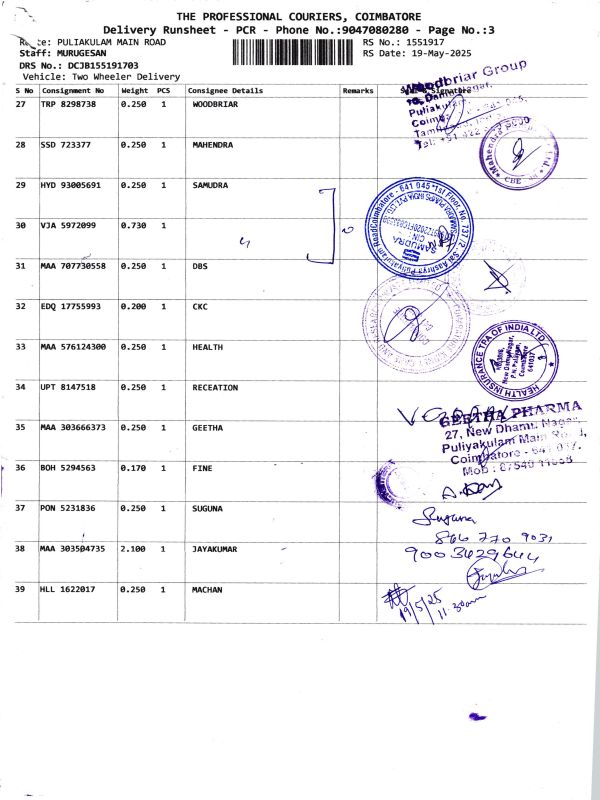 THE PROFESSIONAL COURIERS, COIMBATORE
Delivery Runsheet - PCR - Phone No.:9047080280 - Page No.:3
Route: PULIAKULAM MAIN ROAD
RS No.: 1551917
Staff: MURUGESAN
RS Date: 19-May-2025
DRS No.: DCJB155191703
Vehicle: Two Wheeler Delivery
S No Consignment No Weight PCS Consignee Details Remarks Signature
27 TRP 8298738 0.250 1 WOODBRIAR
Woodbriar Group
28 SSD 723377 0.250 1 MAHENDRA
29 HYD 93005691 0.250 1 SAMUDRA
SAMUDRA
30 VJA 5972099 0.730 1
31 MAA 707730558 0.250 1 DBS
32 EDQ 17755993 0.200 1 CKC
33 MAA 576124300 0.250 1 HEALTH
HEALTH INSURANCE TPA OF INDIA LTD
34 UPT 8147518 0.250 1 RECEATION
35 MAA 303666373 0.250 1 GEETHA
GEETHA PHARMA
27, New Dhamu Nagar,
Puliyakulam Main Road,
Coimbatore - 641 037.
36 BOH 5294563 0.170 1 FINE
37 PON 5231836 0.250 1 SUGUNA
Suguna
866 770 9031
38 MAA 303504735 2.100 1 JAYAKUMAR
9003629644
39 HLL 1622017 0.250 1 MACHAN
19/5/25
11.30am